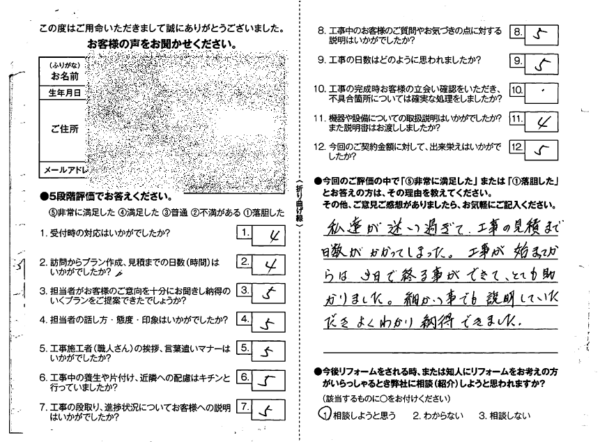 この度はご用命いただきまして誠にありがとうございました。
お客様の声をお聞かせください。
(ふりがな)
お名前
生年月日
ご住所
メールアドレ
●5段階評価でお答えください。
⑤非常に満足した ④満足した ③普通 ②不満がある ①落胆した
1. 受付時の対応はいかがでしたか?
1. 4
2. 訪問からプラン作成、見積までの日数(時間)は
いかがでしたか?
2. 4
3. 担当者がお客様のご意向を十分にお聞きし納得の
いくプランをご提案できたでしょうか?
3. 5
4. 担当者の話し方・態度・印象はいかがでしたか?
4. 5
5. 工事施工者(職人さん)の挨拶、言葉遣いマナーは
いかがでしたか?
5. 5
6. 工事中の養生や片付け、近隣への配慮はキチンと
行っていましたか?
6. 5
7. 工事の段取り、進捗状況についてお客様への説明
はいかがでしたか?
7. 5
(折り曲げ線)
8. 工事中のお客様のご質問やお気づきの点に対する
説明はいかがでしたか?
8. 5
9. 工事の日数はどのように思われましたか?
9. 5
10. 工事の完成時お客様の立会い確認をいただき、
不具合箇所については確実な処理をしましたか?
10.
11. 機器や設備についての取扱説明はいかがでしたか?
また説明書はお渡ししましたか?
11. 4
12. 今回のご契約金額に対して、出来栄えはいかがで
したか?
12. 5
●今回のご評価の中で「⑤非常に満足した」または「①落胆した」
とお答えの方は、その理由を教えてください。
その他、ご意見ご感想がありましたら、お気軽にご記入ください。
私達が迷い過ぎて、工事の見積まで
日数がかかってしまった。工事が始まってか
らは 3日で終る事ができて、とても助
かりました。細かい事でも説明していた
だきよくわかり納得できました。
●今後リフォームをされる時、または知人にリフォームをお考えの方
がいらっしゃるとき弊社に相談(紹介)しようと思われますか?
(該当するものに○をお付けください)
1. 相談しようと思う 2. わからない 3. 相談しない